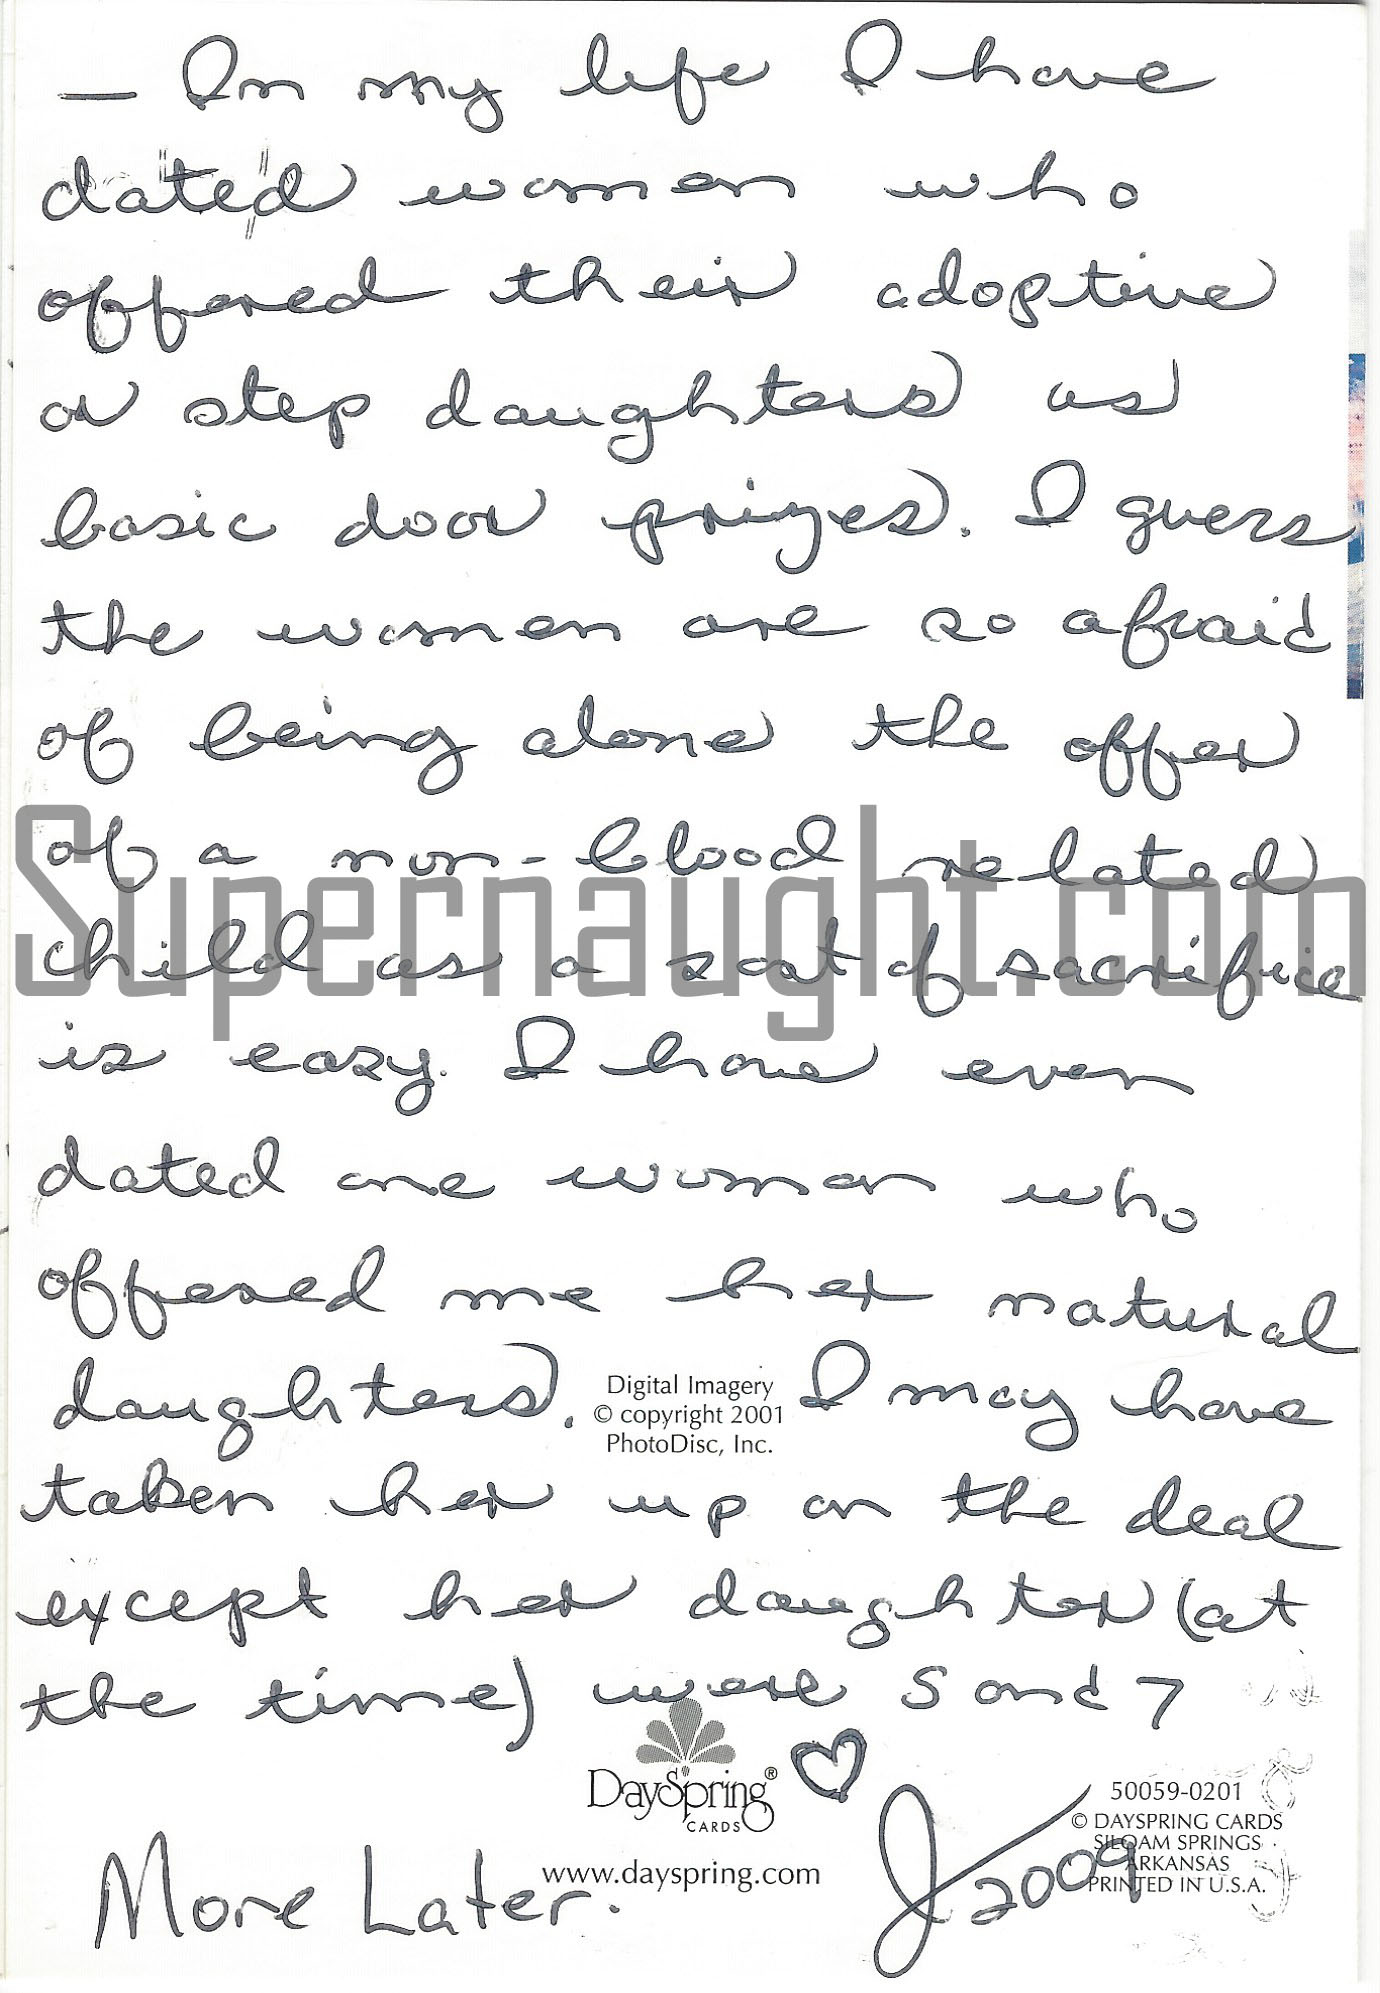 — In my life I have
dated women who
offered their adoptive
or step daughters as
basic door prizes. I guess
the women are so afraid
of being alone the offer
of a non-blood related
Supernaught.com
child as a sort of sacrifice
is easy. I have even
dated one woman who
offered me her natural
daughters. I may have
Digital Imagery
© copyright 2001
PhotoDisc, Inc.
taken her up on the deal
except her daughter (at
the time) were 5 and 7
DaySpring®
CARDS
www.dayspring.com
50059-0201
© DAYSPRING CARDS
SILOAM SPRINGS
ARKANSAS
PRINTED IN U.S.A.
More Later.
J 2009